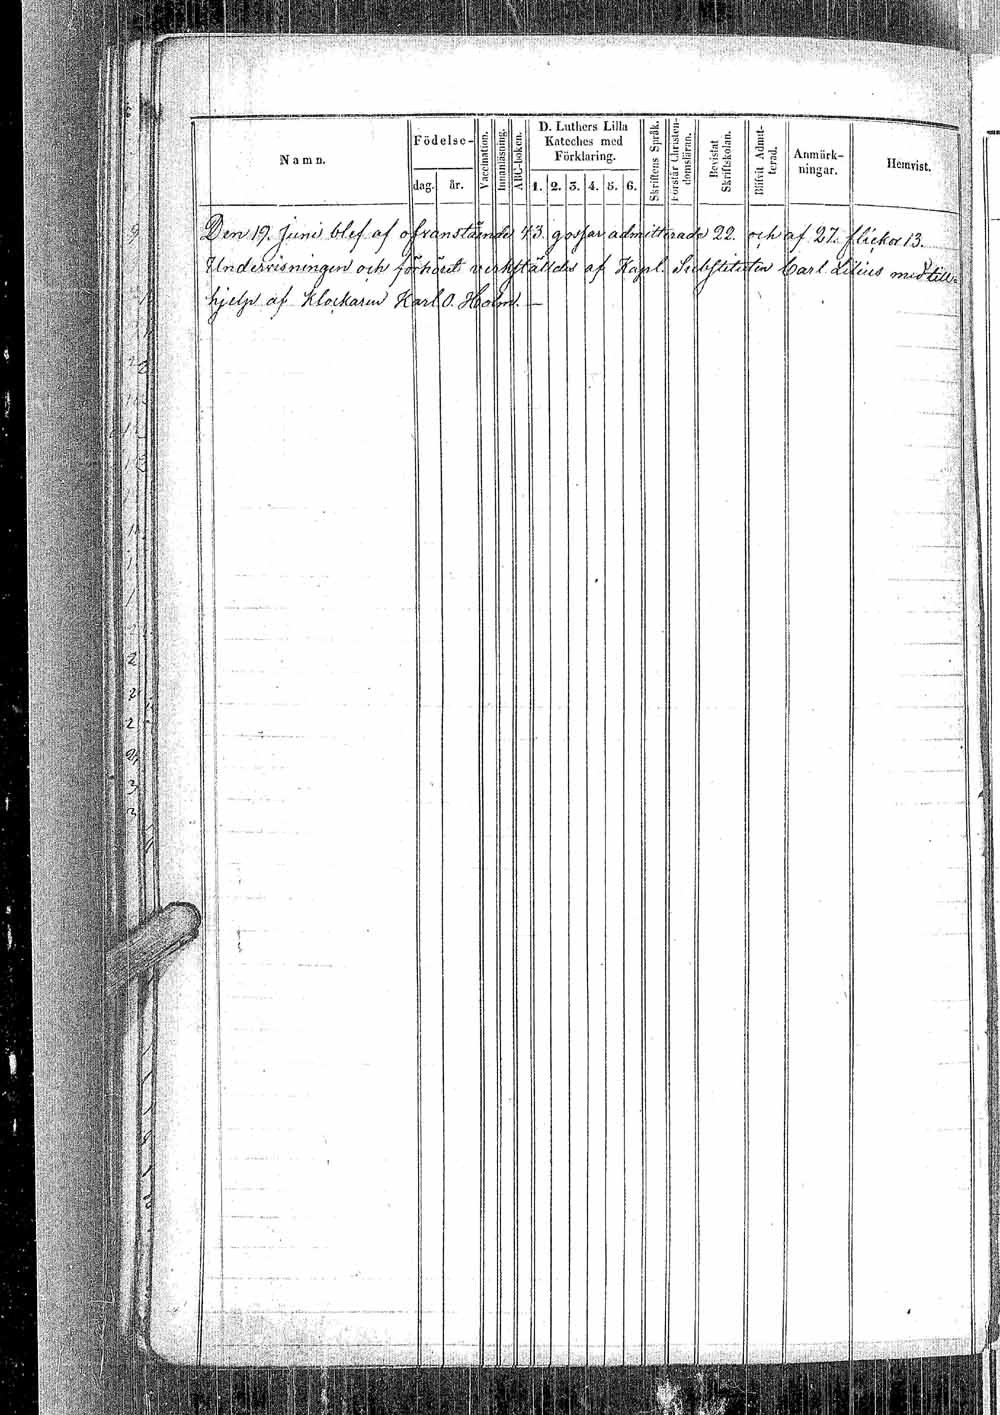 Namn.
Födelse-
dag. år.
Vaccination.
Innanläsning.
ABC-boken.
D. Luthers Lilla
Kateches med
Förklaring.
1. 2. 3. 4. 5. 6.
Skriftens Språk.
Förstår Christen-
domsläran.
Bevistat
Skriftskolan.
Blifvit Admit-
terad.
Anmärk-
ningar.
Hemvist.
Den 19. Juni blef af ofvanstående 43. gossar admitterade 22. och af 27. flickor 13.
Undervisningen och förhöret verkställdes af Kapl. Substituten Carl Lilius med till-
hjelp af Klockaren Karl O. Holm. —